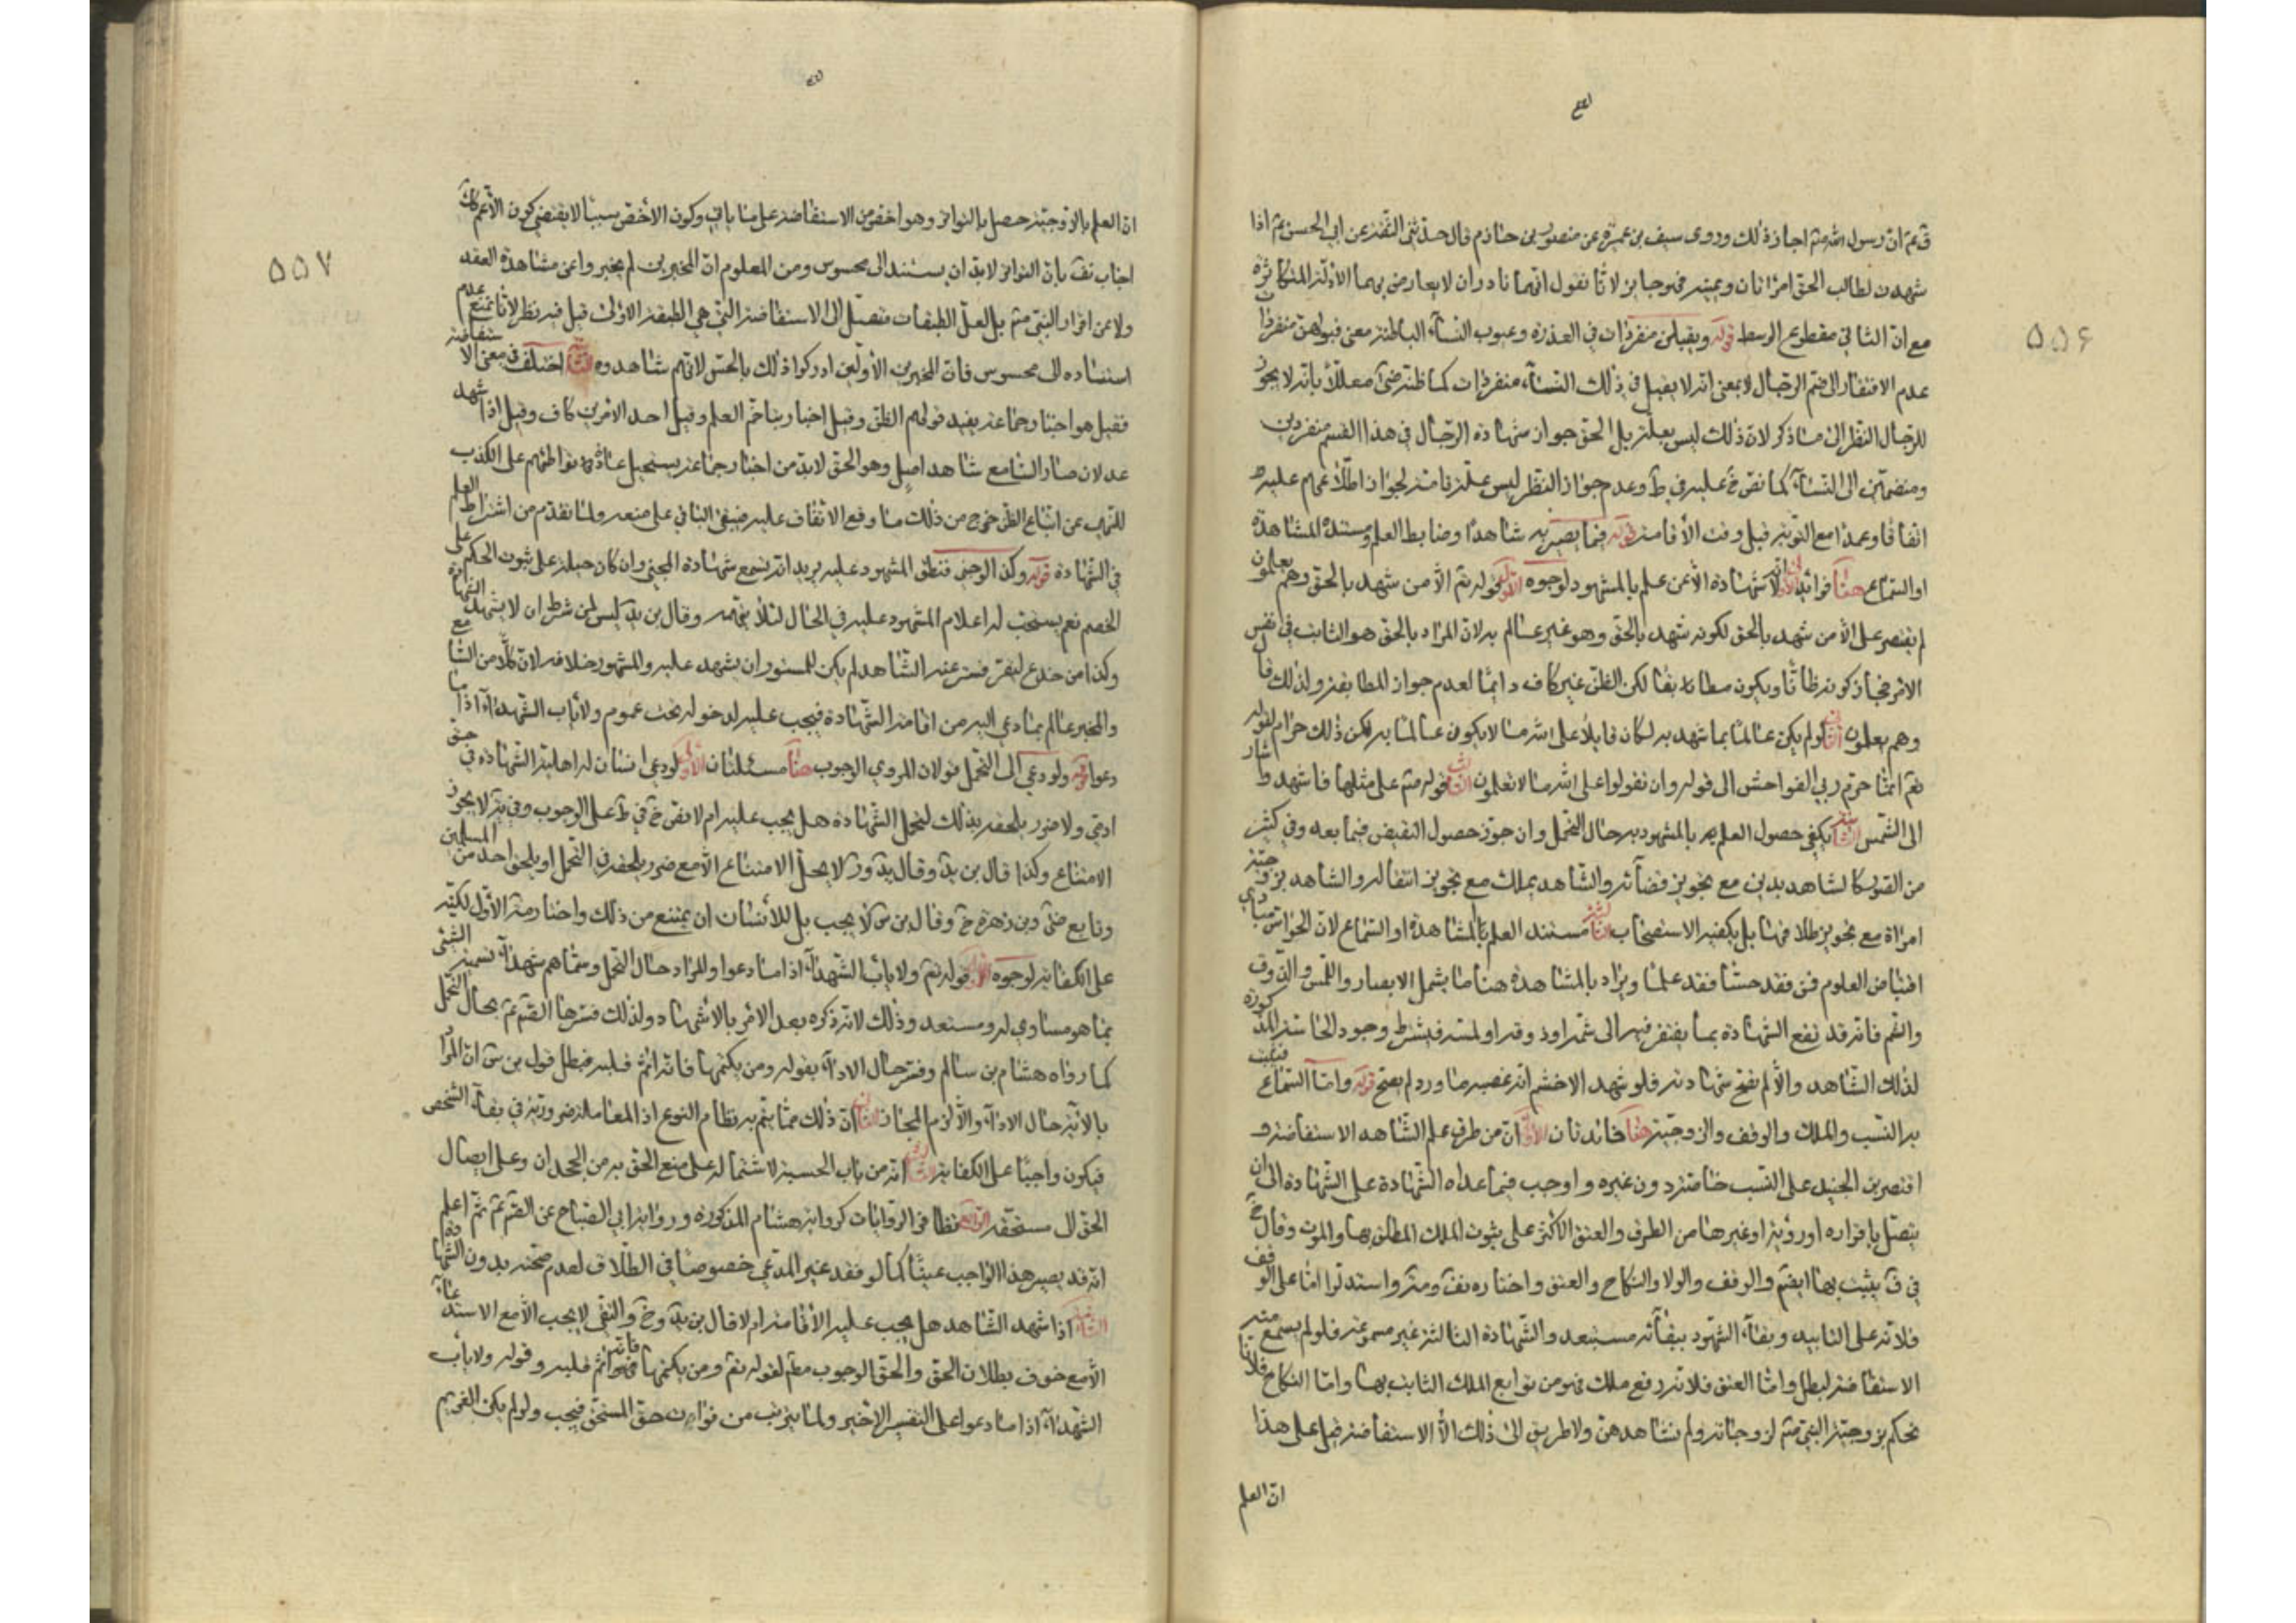 ۵۵۶
ق عم ان رسول الله صم اجاز ذلك وروى سيف بن عميرة عن منصور بن حازم قال حدثنى الثقة عن ابى الحسن عم اذا
شهدت لطالب الحق امراتان ويمينه فهو جايز لانا نقول انهما نادران لا يعارض بهما الادلة المتكاثرة
مع ان الثانى مقطوع الوسط قوله ويقبلن منفردات فى العذرة وعيوب النسآء الباطنة معنى قبولهن منفردات
عدم الافتقار الى ضم الرجال لا بمعنى انه لا يقبل فى ذلك النسآء منفردات كما ظنه معللا بانه لا يجوز
للرجال النظر الى ما ذكر لان ذلك ليس بعلة بل الحق جواز شهادة الرجال فى هذا القسم منفردين
ومنضمين الى النسآء كما نص خ عليه فى ط وعدم جواز النظر ليس علة تامة لجواز اطلاعهم عليه
اتفاقا وعمدا مع التوبة قبل وقت الاقامة قوله فيما يصير به شاهدا وضابط العلم ومستنده المشاهدة
او السماع هنا فوائد الاولى لا شهادة الا عن علم بالمشهود لوجوه الاول قوله تع الا من شهد بالحق وهم يعلمون
لم يقتصر على الا من شهد بالحق لكونه شهد بالحق وهو غير عالم به لان المراد بالحق هو الثابت فى نفس
الامر فجاز كونه ظانا ويكون مطابقا لكن الظن غير كاف دائما لعدم جواز المطابقة ولذلك قال
وهم يعلمون الثانى لو لم يكن عالما بما شهد به لكان قايلا على الله ما لا يكون عالما به لكن ذلك حرام لقوله
تع انما حرم ربى الفواحش الى قوله وان تقولوا على الله ما لا تعلمون الثالث قوله صم على مثلها فاشهد واشار
الى الشمس الثانية يكفى حصول العلم بالمشهود به حال التحمل وان جوز حصول النقيض فيما بعد وفى كثير
من الصور كالشاهد بدين مع تجويز قضآئه والشاهد بملك مع تجويز انتقاله والشاهد بزوجية
امراة مع تجويز طلاقها بل يكفيه الاستصحاب الثالثة مستند العلم بالمشاهدة او السماع لان الحواس مبادى
اقتباض العلوم فمن فقد حسا فقد علما ويراد بالمشاهدة هنا ما يشمل الابصار واللمس والذوق
والشم فانه قد تقع الشهادة بما يفتقر فيه الى شمه او ذوقه او لمسه فيشترط وجود الحاسة المذكورة
لذلك الشاهد والا لم تصح شهادته فلو شهد الاخشم انه غصبه ما ورد لم يصح قوله واما السماع فيثبت
به النسب والملك والوقف والزوجية هنا فائدتان الاولى ان من طرق علم الشاهد الاستفاضة و
اقتصر بن الجنيد على النسب خاصة دون غيره واوجب فيما عداه الشهادة على الشهادة الى ان
يتصل باقراره او رؤية او غيرها من الطرق والعتق الاكثر على ثبوت الملك المطلق بها والموت وقال خ
فى ف يثبت بها ايضم والوقف والولا والنكاح والعتق واختاره نف ومة واستدلوا اما على الوقف
فلانه على التابيد وبقآء الشهود ببقآئه مستبعد والشهادة الثالثة غير مسموعة فلو لم يسمع فيه
الاستفاضة لبطل واما العتق فلانه رفع ملك فهو من توابع الملك الثابت بها واما النكاح فلانا
نحكم بزوجية النبى صم لزوجاته ولم نشاهدهن ولا طريق الى ذلك الا الاستفاضة قيل على هذا
ان العلم
۵۵۷
ان العلم بالزوجية حصل بالتواتر وهو اخص من الاستفاضة على ما ياتى وكون الاخص سببا لا يقتضى كون الاعم كك
اجاب نف بان التواتر لابد ان يستند الى محسوس ومن المعلوم ان المخبرين لم يخبروا عن مشاهدة العقد
ولا عن اقرار النبى صم بل لعل الطبقات متصل الى الاستفاضة التى هى الطبقة الاولى قيل فيه نظر لانا نمنع عدم
استناده الى محسوس فان المخبرين الاولين ادركوا ذلك بالحس لانهم شاهدوه الثانية اختلف فى معنى الاستفاضة
فقيل هو اخبار جماعة يفيد قولهم الظن وقيل اخبار يتاخم العلم وقيل احد الامرين كاف وقيل اذا شهد
عدلان صار السامع شاهد اصل وهو الحق لابد من اخبار جماعة يستحيل عادة تواطئهم على الكذب
للنهى عن اتباع الظن خرج من ذلك ما وقع الاتفاق عليه فيبقى الباقى على منعه ولما تقدم من اشتراط العلم
فى الشهادة قوله وكذا لو خبى فنطق المشهود عليه يريد انه تسمع شهادة المخبى وان كان حيلة على ثبوت الحكم على
الخصم نعم يستحب له اعلام المشهود عليه فى الحال لئلا يتهمه وقال بن يد ليس لمن شرط ان لا يشهد الشهادة
وكذا من خدع ليقر فستر عنه الشاهد لم يكن للمستور ان يشهد عليه والمشهور خلافه لان كلا من السامع
والمخبر عالم بما دعى اليه من اقامة الشهادة فيجب عليه لدخوله تحت عموم ولا ياب الشهدآء اذا ما
دعوا قوله ولو دعى الى التحمل قولان المروى الوجوب هنا مسئلتان الاولى لو دعى انسان له اهلية الشهادة فى حق
ادمى ولا ضرر يلحقه بذلك لتحمل الشهادة هل يجب عليه ام لا نص خ فى ط على الوجوب وفى ية لا يجوز
الامتناع وكذا قال بن يد وقال يد وز لا يحل الامتناع الا مع ضرر يلحقه فى التحمل او يلحق احد من المسلمين
وتابع ضى وبن زهرة خ وقال بن س لا يجب بل للانسان ان يمتنع من ذلك واختار مة الاول لكنه
على الكفاية لوجوه الاول قوله تع ولا ياب الشهدآء اذا ما دعوا والمراد حال التحمل وسماهم شهدآء تسمية الشئ
بما هو مساوى له ومستعد وذلك لانه ذكره بعد الامر بالاشهاد ولذلك فسرها الصم عم بحال التحمل
كما رواه هشام بن سالم وفسر حال الادآء بقوله ومن يكتمها فانه اثم قلبه فبطل قول بن س ان المراد
بالآية حال الادآء والا لزم المجاز الثانى ان ذلك مما يتم به نظام النوع اذ المعاملة ضرورية فى بقآء الشخص
فيكون واجبا على الكفاية الثالث انه من باب الحسبة لاشتماله على منع الحق به من الجحدان وعلى ايصال
الحق الى مستحقه الرابع تظافر الروايات كرواية هشام المذكورة ورواية ابى الصباح عن الصم عم ثم اعلم
انه قد يصير هذا الواجب عينا كما لو فقد غير المدعى خصوصا فى الطلاق لعدم صحته بدون الشهادة
الثانية اذا شهد الشاهد هل يجب عليه الاقامة ام لا قال بن يد وخ والتقى لا يجب الا مع الاستدعآء
الا مع خوف بطلان الحق والحق الوجوب مطم لقوله تع ومن يكتمها فانه اثم قلبه وقوله ولا ياب
الشهدآء اذا ما دعوا على التفسير الاخير ولما يترتب من فوات حق المستحق فيجب ولو لم يكن الغريم